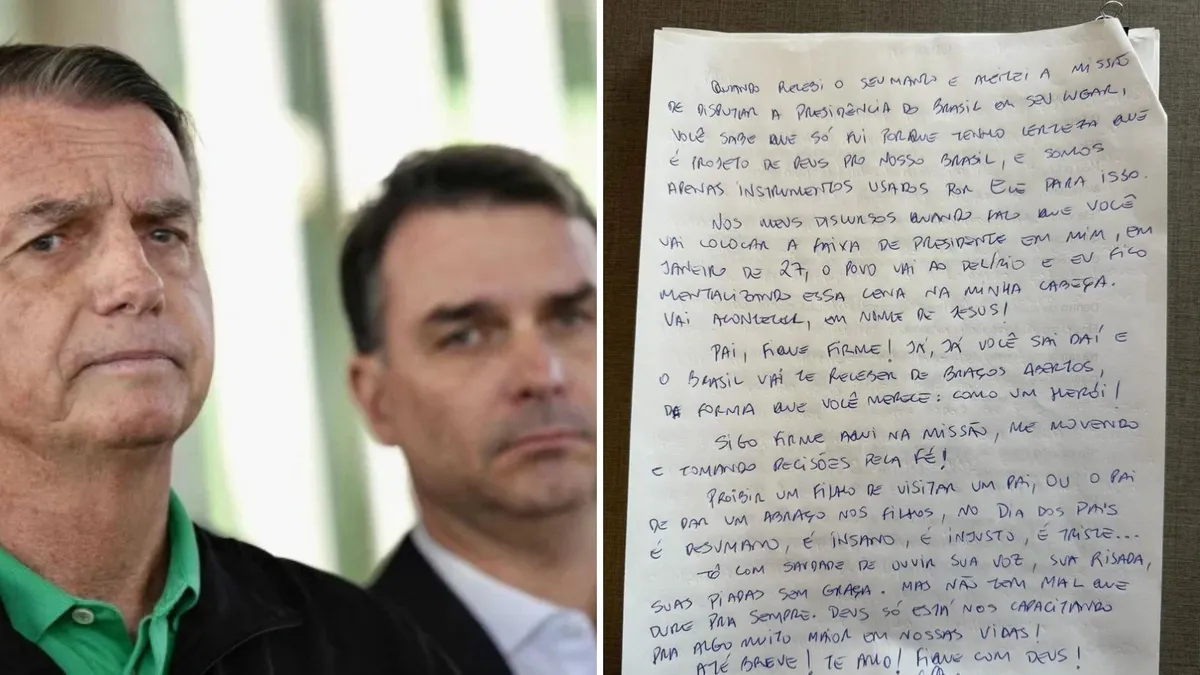 QUANDO RECEBI O SEU MANTO E ACEITEI A MISSÃO
DE DISPUTAR A PRESIDÊNCIA DO BRASIL EM SEU LUGAR,
VOCÊ SABE QUE SÓ FUI PORQUE TENHO CERTEZA QUE
É PROJETO DE DEUS PRO NOSSO BRASIL, E SOMOS
APENAS INSTRUMENTOS USADOS POR ELE PARA ISSO.
NOS MEUS DISCURSOS QUANDO FALO QUE VOCÊ
VAI COLOCAR A FAIXA DE PRESIDENTE EM MIM, EM
JANEIRO DE 27, O POVO VAI AO DELÍRIO E EU FICO
MENTALIZANDO ESSA CENA NA MINHA CABEÇA.
VAI ACONTECER, EM NOME DE JESUS!
PAI, FIQUE FIRME! JÁ, JÁ VOCÊ SAI DAÍ E
O BRASIL VAI TE RECEBER DE BRAÇOS ABERTOS,
DA FORMA QUE VOCÊ MERECE: COMO UM HERÓI!
SIGO FIRME AQUI NA MISSÃO, ME MOVENDO
E TOMANDO DECISÕES PELA FÉ!
PROIBIR UM FILHO DE VISITAR UM PAI, OU O PAI
DE DAR UM ABRAÇO NOS FILHOS, NO DIA DOS PAIS
É DESUMANO, É INSANO, É INJUSTO, É TRISTE...
TÔ COM SAUDADE DE OUVIR SUA VOZ, SUA RISADA,
SUAS PIADAS SEM GRAÇA. MAS NÃO TEM MAL QUE
DURE PRA SEMPRE. DEUS SÓ ESTÁ NOS CAPACITANDO
PRA ALGO MUITO MAIOR EM NOSSAS VIDAS!
ATÉ BREVE! TE AMO! FIQUE COM DEUS!